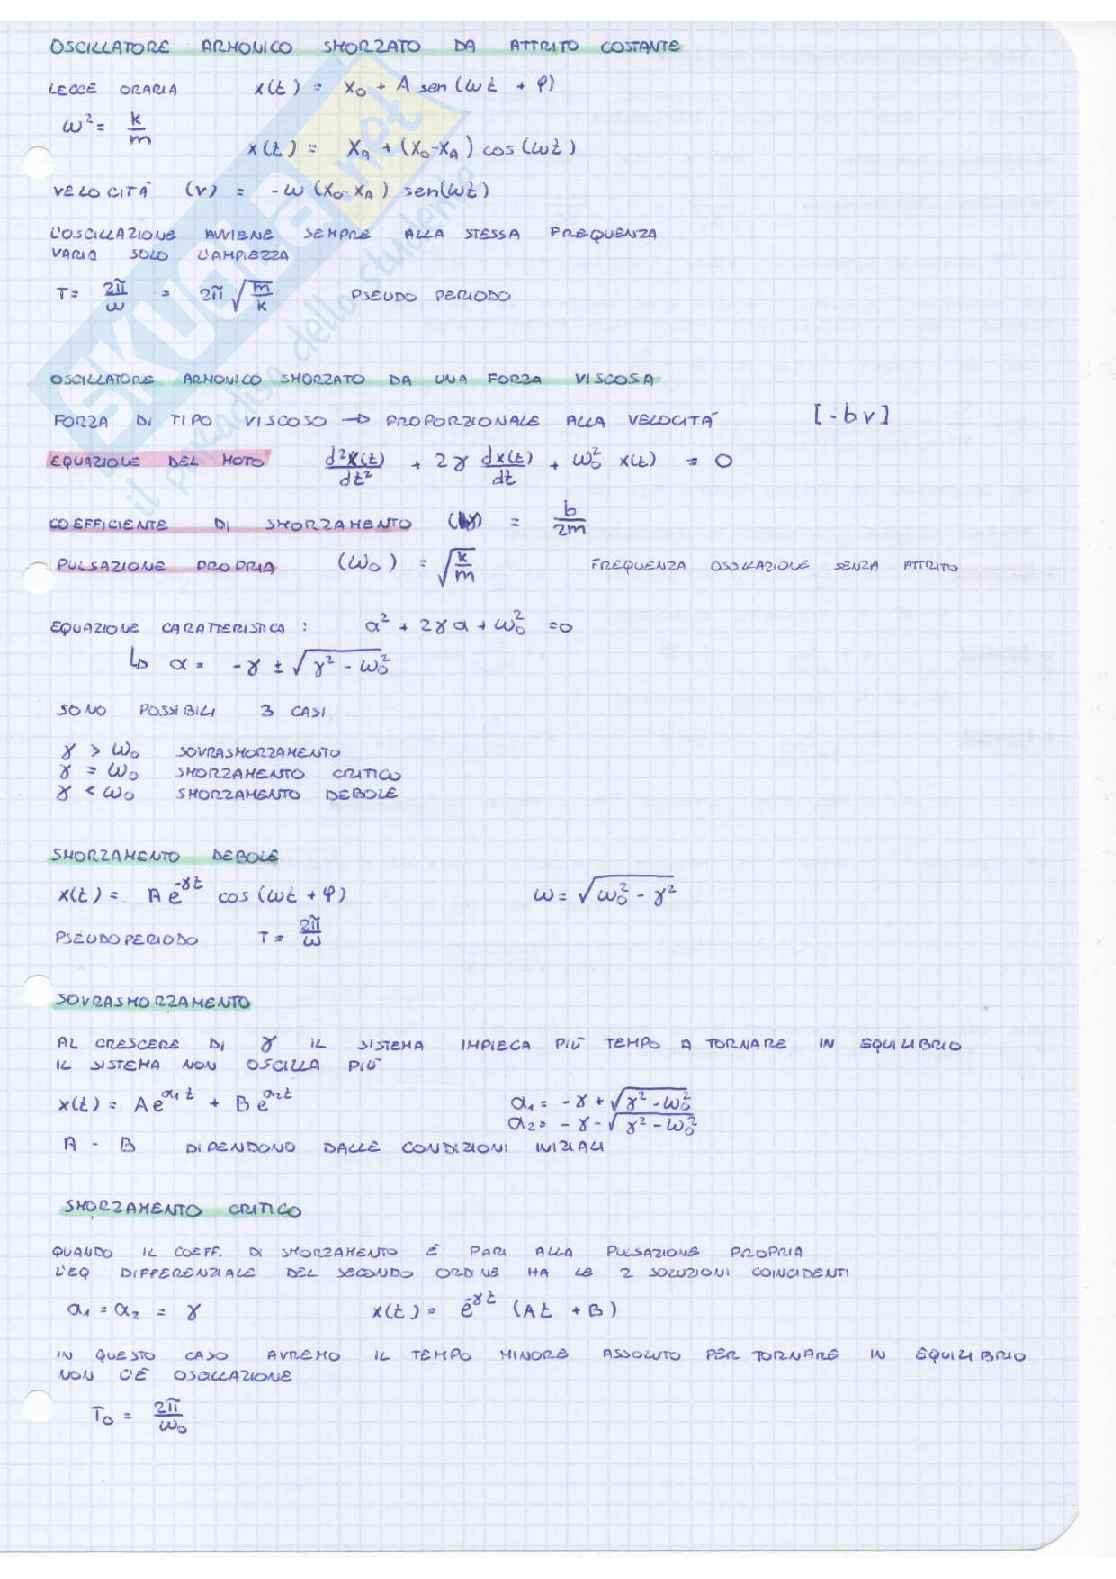 OSCILLATORE ARMONICO SMORZATO DA ATTRITO COSTANTE
LEGGE ORARIA x(t) = x₀ + A sen(ωt + φ)
ω² = k/m
x(t) = x_A + (x₀-x_A) cos(ωt)
VELOCITÀ (v) = -ω (x₀-x_A) sen(ωt)
L'OSCILLAZIONE AVVIENE SEMPRE ALLA STESSA FREQUENZA
VARIA SOLO L'AMPIEZZA
T = 2π/ω = 2π √(m/k) PSEUDO PERIODO
OSCILLATORE ARMONICO SMORZATO DA UNA FORZA VISCOSA
FORZA DI TIPO VISCOSO → PROPORZIONALE ALLA VELOCITÀ [-bv]
EQUAZIONE DEL MOTO d²x(t)/dt² + 2γ dx(t)/dt + ω₀² x(t) = 0
COEFFICIENTE DI SMORZAMENTO (γ) = b/2m
PULSAZIONE PROPRIA (ω₀) = √(k/m) FREQUENZA OSCILLAZIONE SENZA ATTRITO
EQUAZIONE CARATTERISTICA : α² + 2γα + ω₀² = 0
↳ α = -γ ± √(γ² - ω₀²)
SONO POSSIBILI 3 CASI
γ > ω₀ SOVRASMORZAMENTO
γ = ω₀ SMORZAMENTO CRITICO
γ < ω₀ SMORZAMENTO DEBOLE
SMORZAMENTO DEBOLE
x(t) = A e^(-γt) cos(ωt + φ) ω = √(ω₀² - γ²)
PSEUDOPERIODO T = 2π/ω
SOVRASMORZAMENTO
AL CRESCERE DI γ IL SISTEMA IMPIEGA PIÙ TEMPO A TORNARE IN EQUILIBRIO
IL SISTEMA NON OSCILLA PIÙ
x(t) = A e^(α₁t) + B e^(α₂t) α₁ = -γ + √(γ² - ω₀²)
α₂ = -γ - √(γ² - ω₀²)
A - B DIPENDONO DALLE CONDIZIONI INIZIALI
SMORZAMENTO CRITICO
QUANDO IL COEFF. DI SMORZAMENTO È PARI ALLA PULSAZIONE PROPRIA
L'EQ DIFFERENZIALE DEL SECONDO ORDINE HA LE 2 SOLUZIONI COINCIDENTI
α₁ = α₂ = γ x(t) = e^(-γt) (At + B)
IN QUESTO CASO AVREMO IL TEMPO MINORE ASSOLUTO PER TORNARE IN EQUILIBRIO
NON C'È OSCILLAZIONE
T₀ = 2π/ω₀
SKUOLA.net
il paradiso dello studente